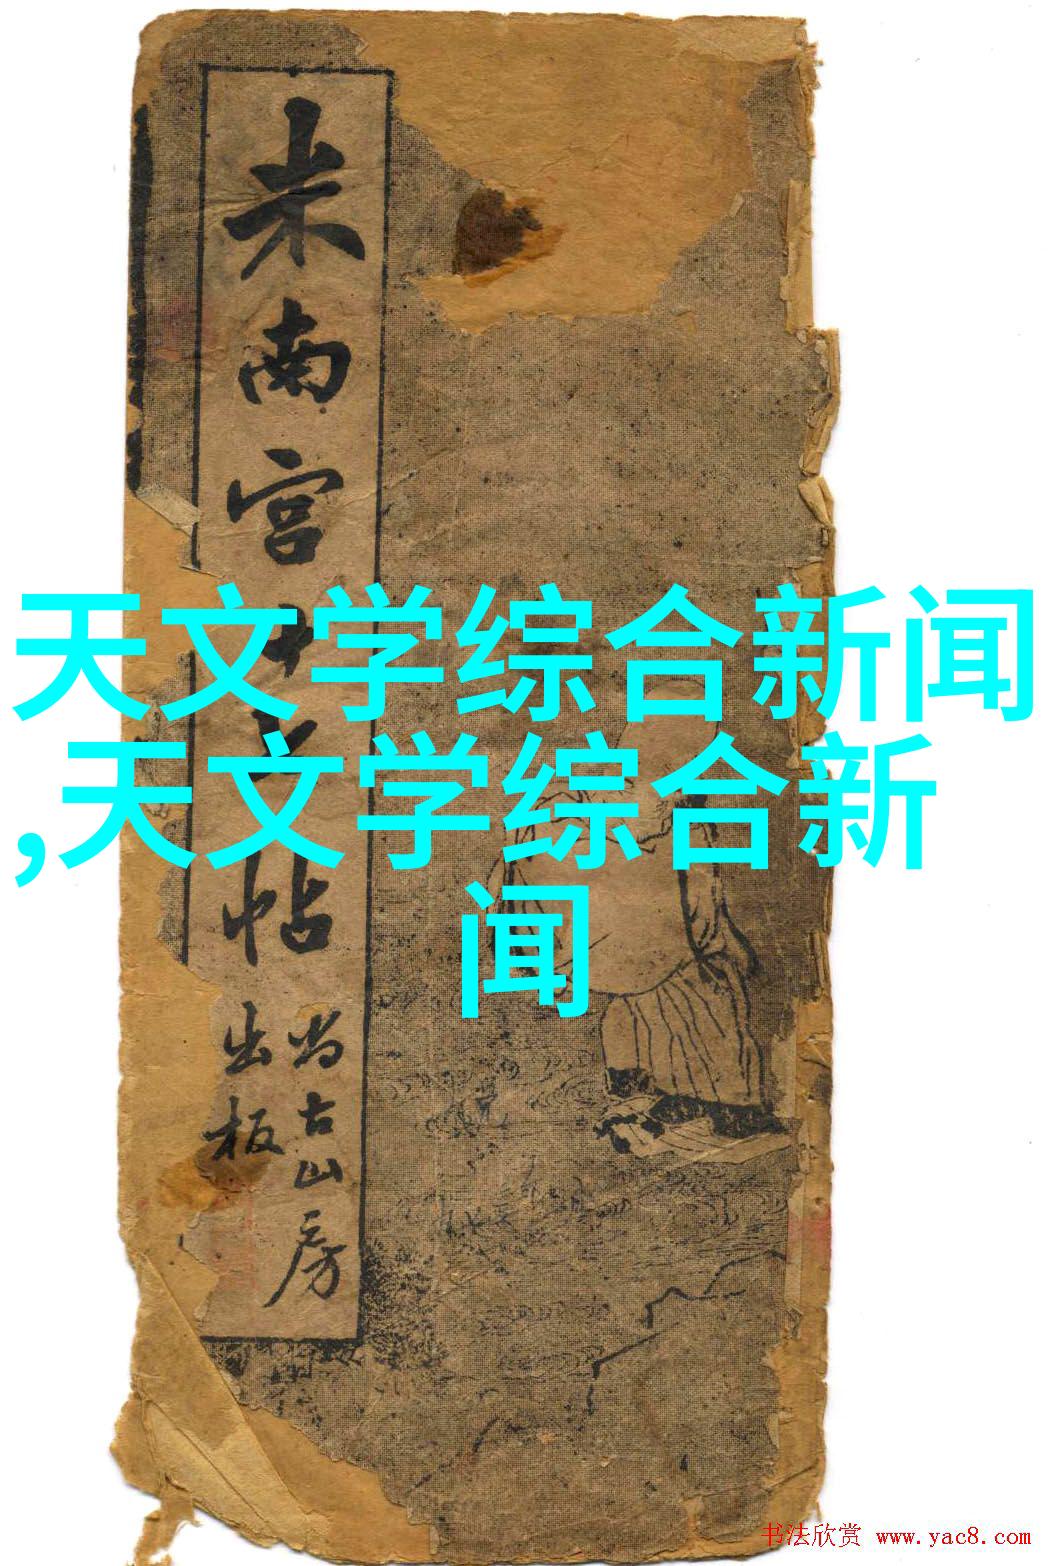 米南宫
帖
尚古山房
出板
天文学综合新闻
,天文学综合新
闻
书法欣赏 www.yac8.com